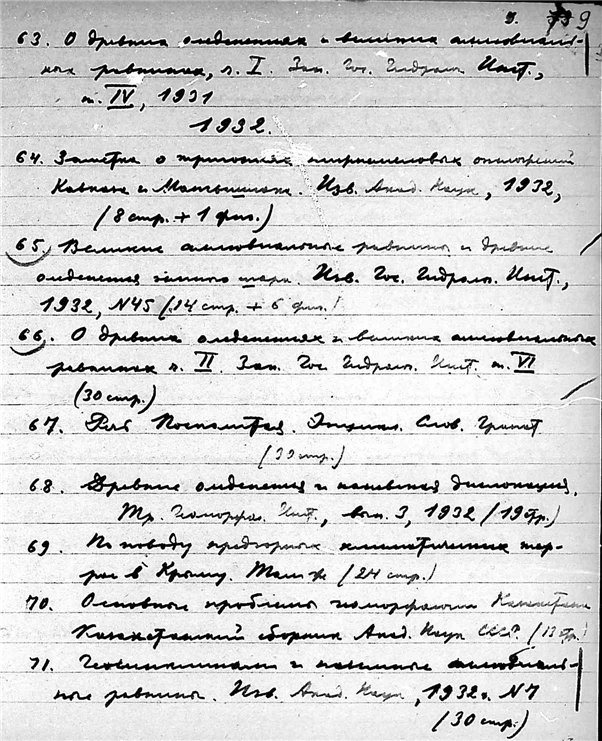 9
63. О древних оледенениях и великих аллювиаль-
ных равнинах, ч. I. Зап. Гос. Гидролог. Инст.,
т. IV, 1931
1932.
64. Заметка о третичных отложений
Кавказа и Мангышлака. Изв. Акад. Наук, 1932,
(8 стр. + 1 фиг.)
65. Великие аллювиальные равнины и древние
оледенения земного шара. Изв. Гос. Гидролог. Инст.,
1932, N45 (14 стр. + 6 фиг.)
66. О древних оледенениях и великих аллювиальных
равнинах ч. II. Зап. Гос. Гидролог. Инст. т. VI
(30 стр.)
67. Посполитая. Энцикл. Слов. Гранат
(39 стр.)
68. Древние оледенения и каневская дислокация.
Тр. Геоморфол. Инст., вып. 3, 1932 (19 стр.)
69. По поводу предгорных климатических тер-
рас в Крыму. Там же (24 стр.)
70. Основные проблемы геоморфологии Казахстана
Казахстанский сборник Акад. Наук СССР. (13 стр.)
71. Геосинклинали и наземные аллювиаль-
ные равнины. Изв. Акад. Наук, 1932 г. N7
(30 стр.)